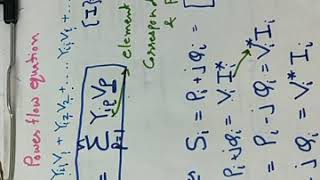 Power flow equation
Yi1V1 + Yi2V2 + .... YiiVi + ....
[I]
= Σ YipVp
element
Correspond
&
Si = Pi - jQi =
Pi + jQi = ViIi*
= Pi - jQi = Vi*Ii
- jQi = Vi*Ii